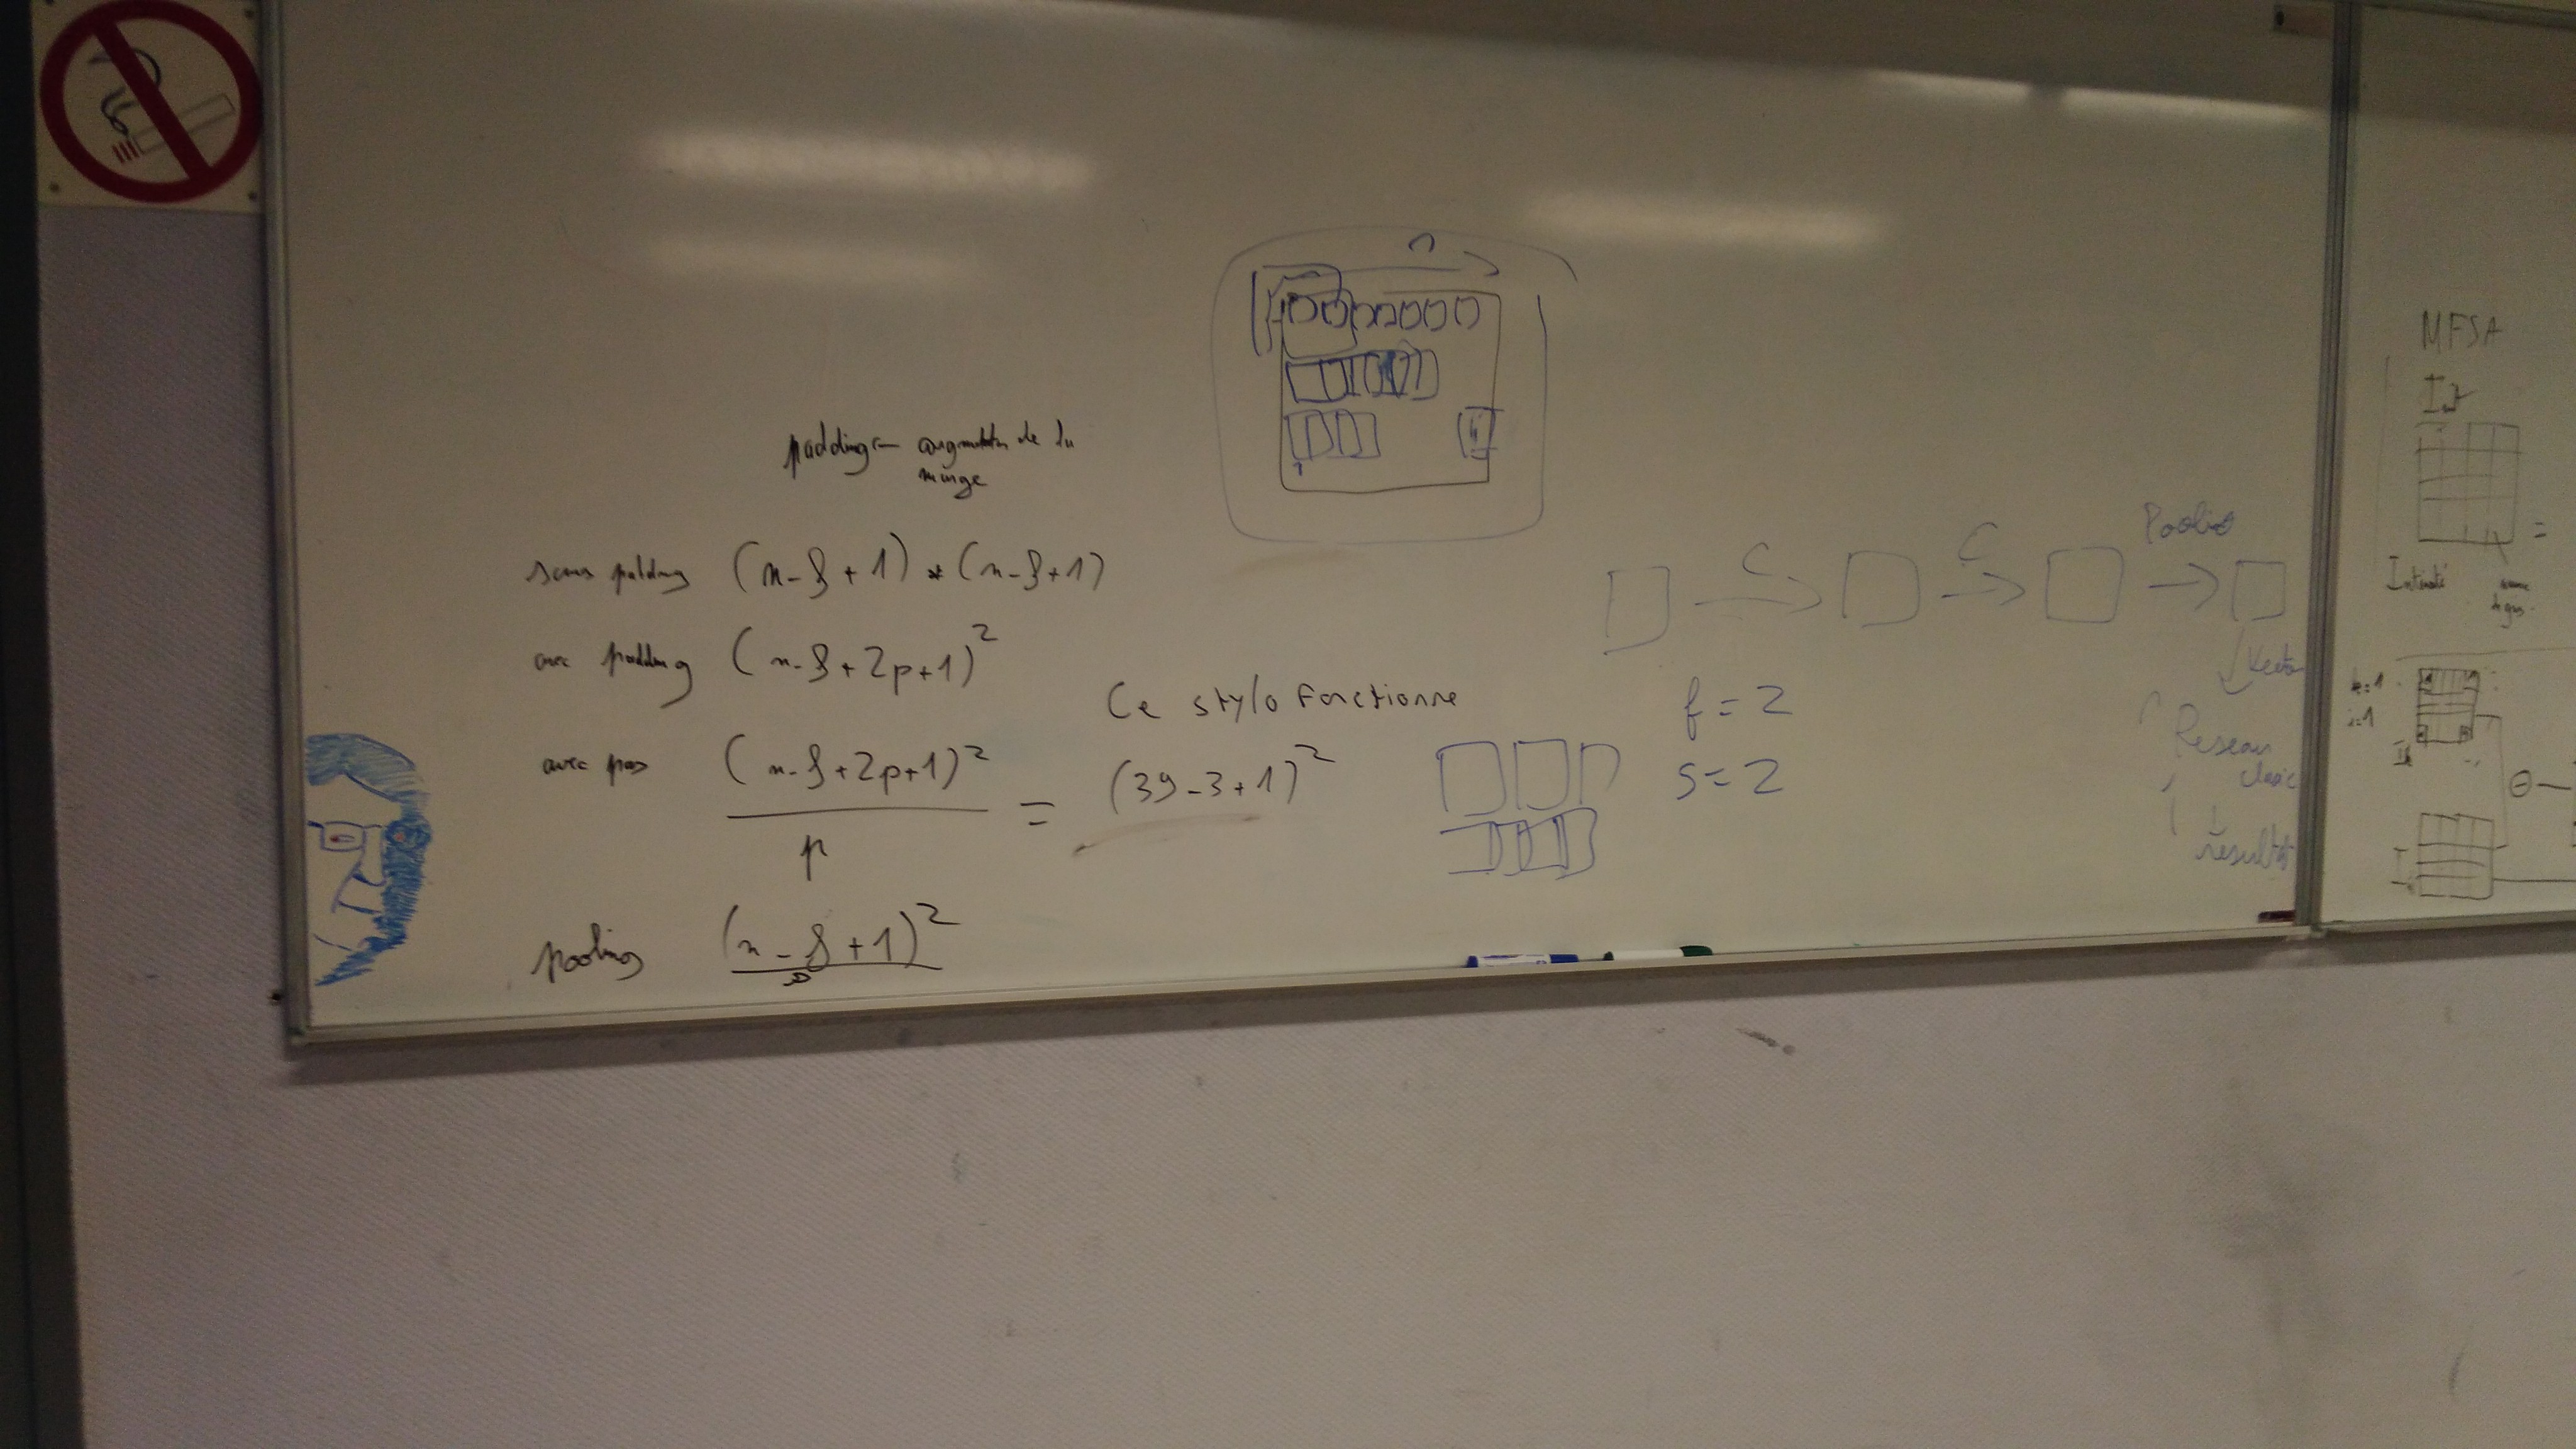 n
padding = augmentation de la
marge
sans padding (n-f+1) * (n-f+1)
avec padding (n-f+2p+1)²
avec pas (n-f+2p+1)² / p = (39-3+1)²
pooling (n-f+1)² / s
Ce stylo fonctionne
f=2
s=2
C C Pooling
Vecteur
Reseau
clasic
résultat
MFSA
Int
=
Intensité
k=1
i=1